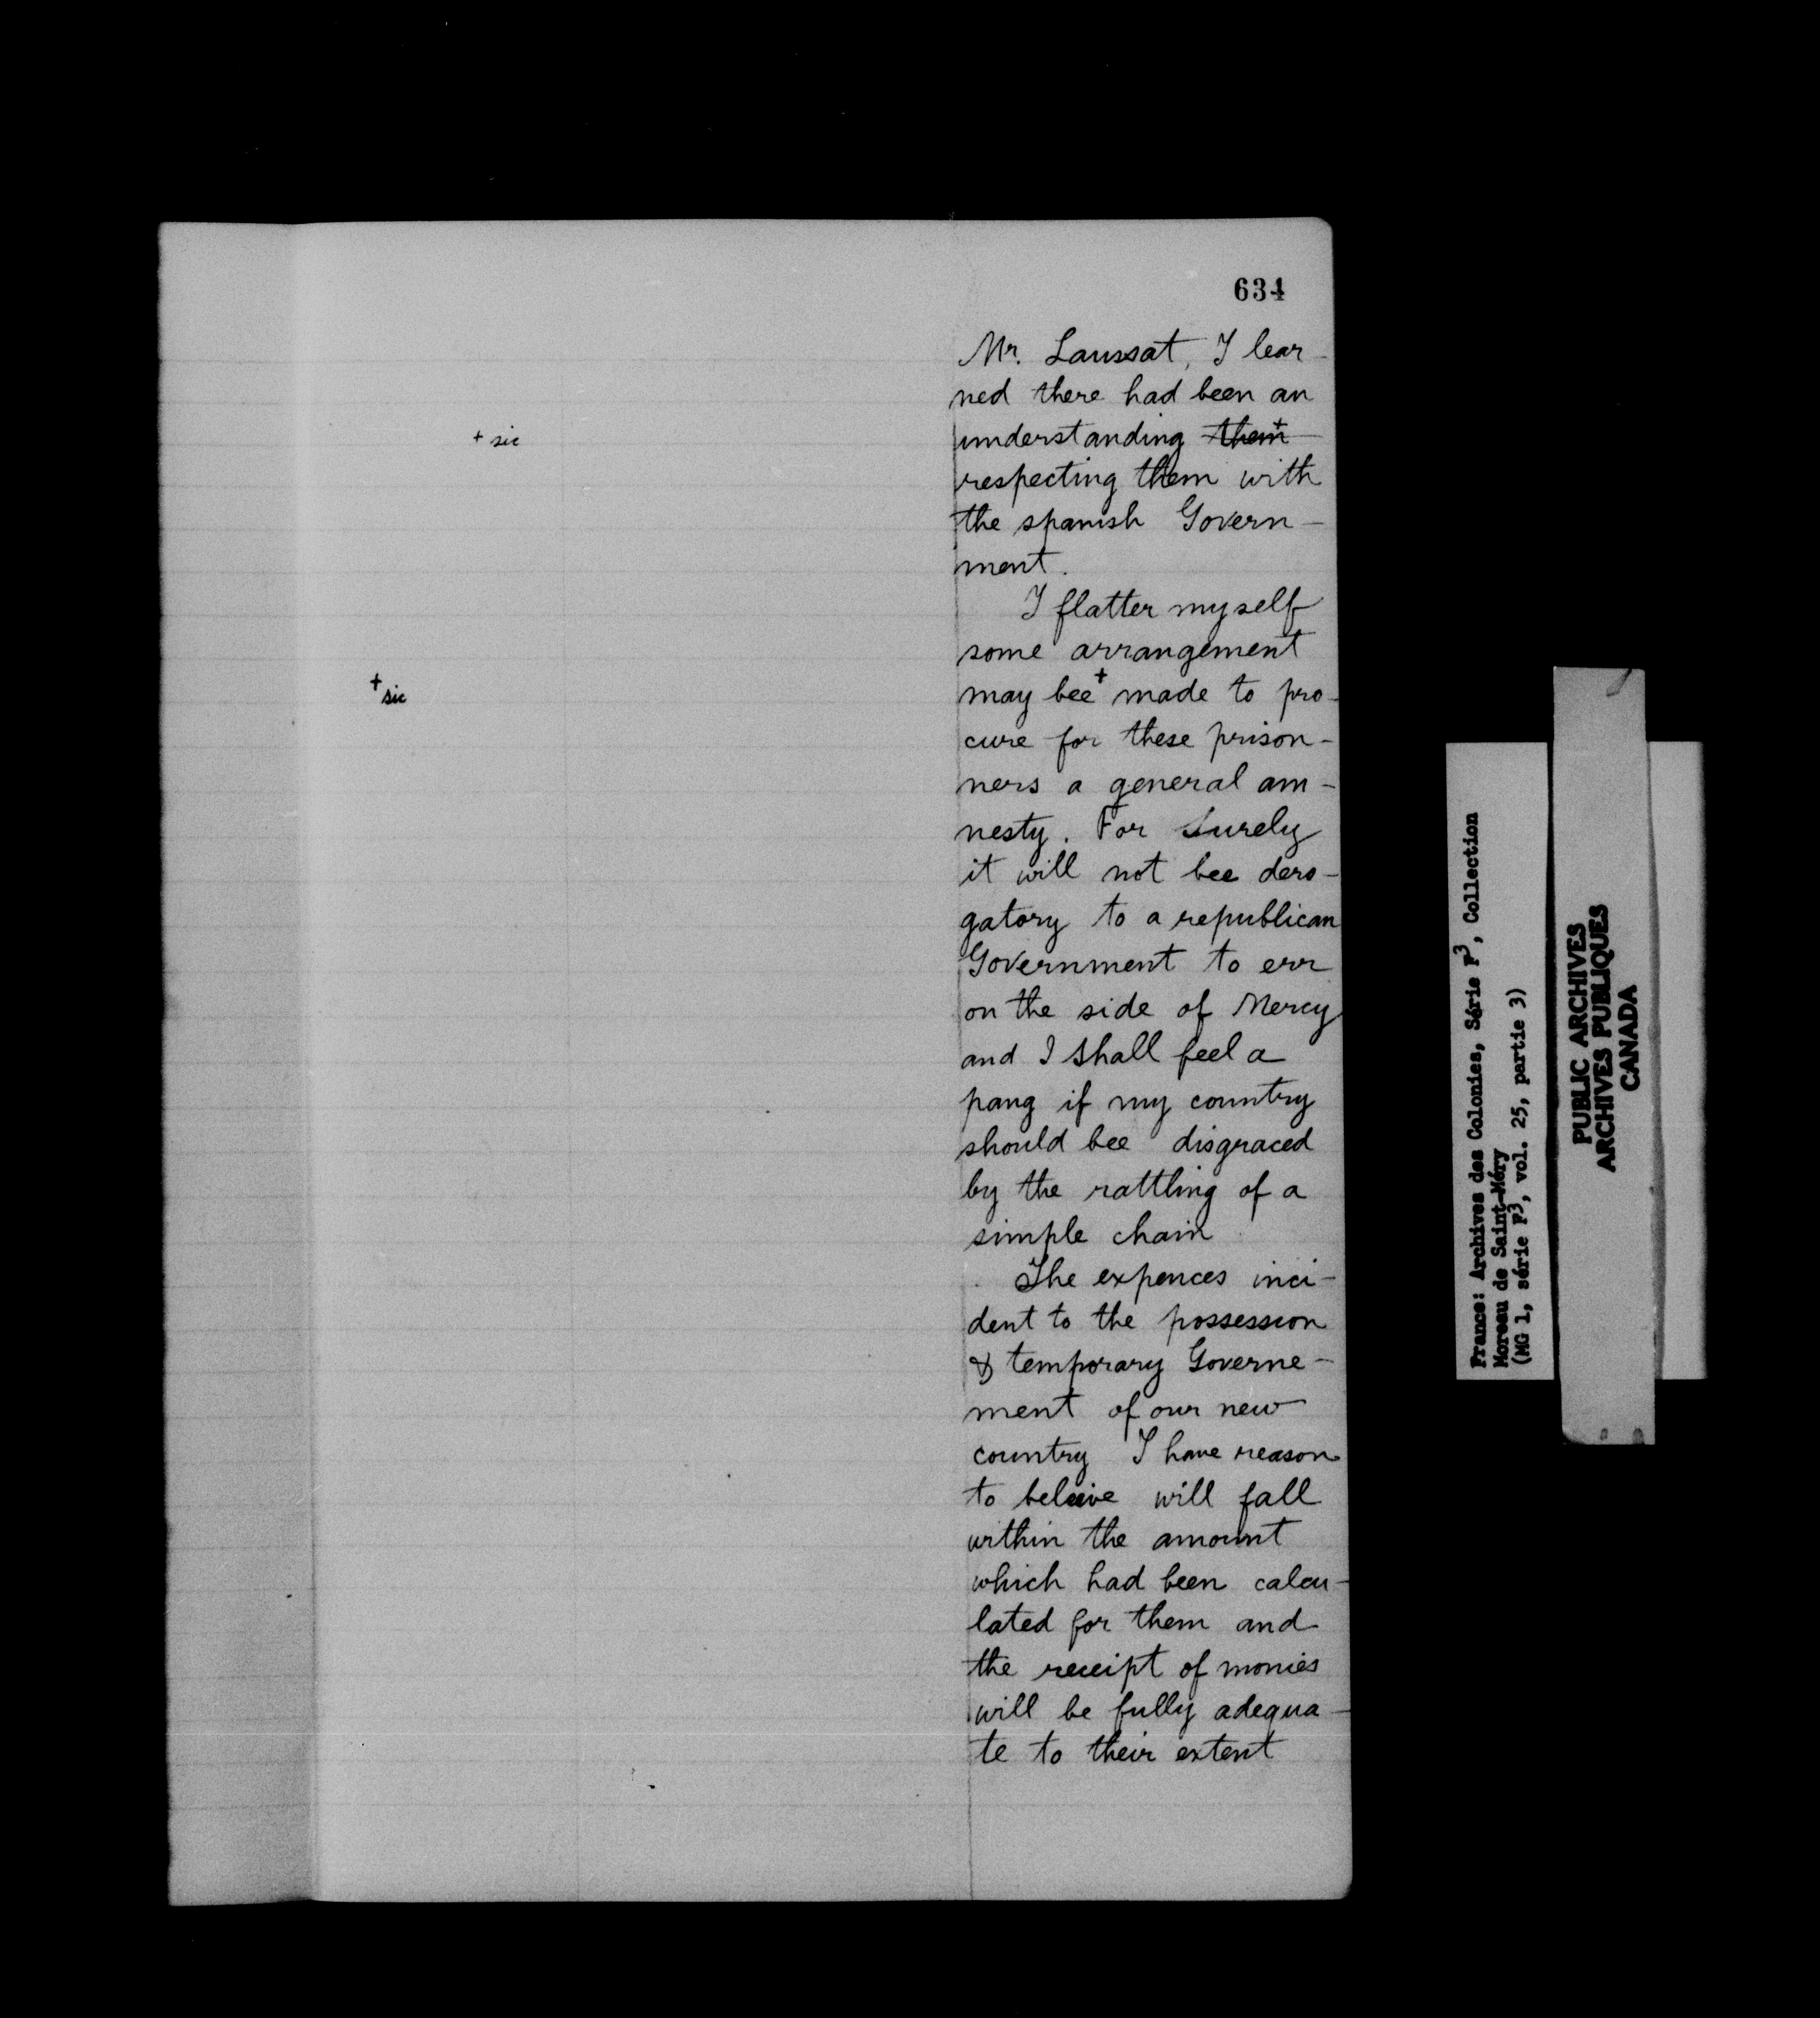 634
Mr. Laussat, I lear-
ned there had been an
+ sic
understanding ~~them~~+
respecting them with
the spanish Govern-
ment.
I flatter myself
some arrangement
+ sic
may bee+ made to pro-
cure for these prison-
ners a general am-
nesty. For surely
it will not bee dero-
gatory to a republican
Government to err
on the side of Mercy
and I shall feel a
pang if my country
should bee disgraced
by the rattling of a
simple chain
The expences inci-
dent to the possession
& temporary Governe-
ment of our new
country I have reason
to beleive will fall
within the amount
which had been calcu-
lated for them and
the receipt of monies
will be fully adequa-
te to their extent
France: Archives des Colonies, Série F3, Collection
Moreau de Saint-Méry
(MG 1, série F3, vol. 25, partie 3)
PUBLIC ARCHIVES
ARCHIVES PUBLIQUES
CANADA